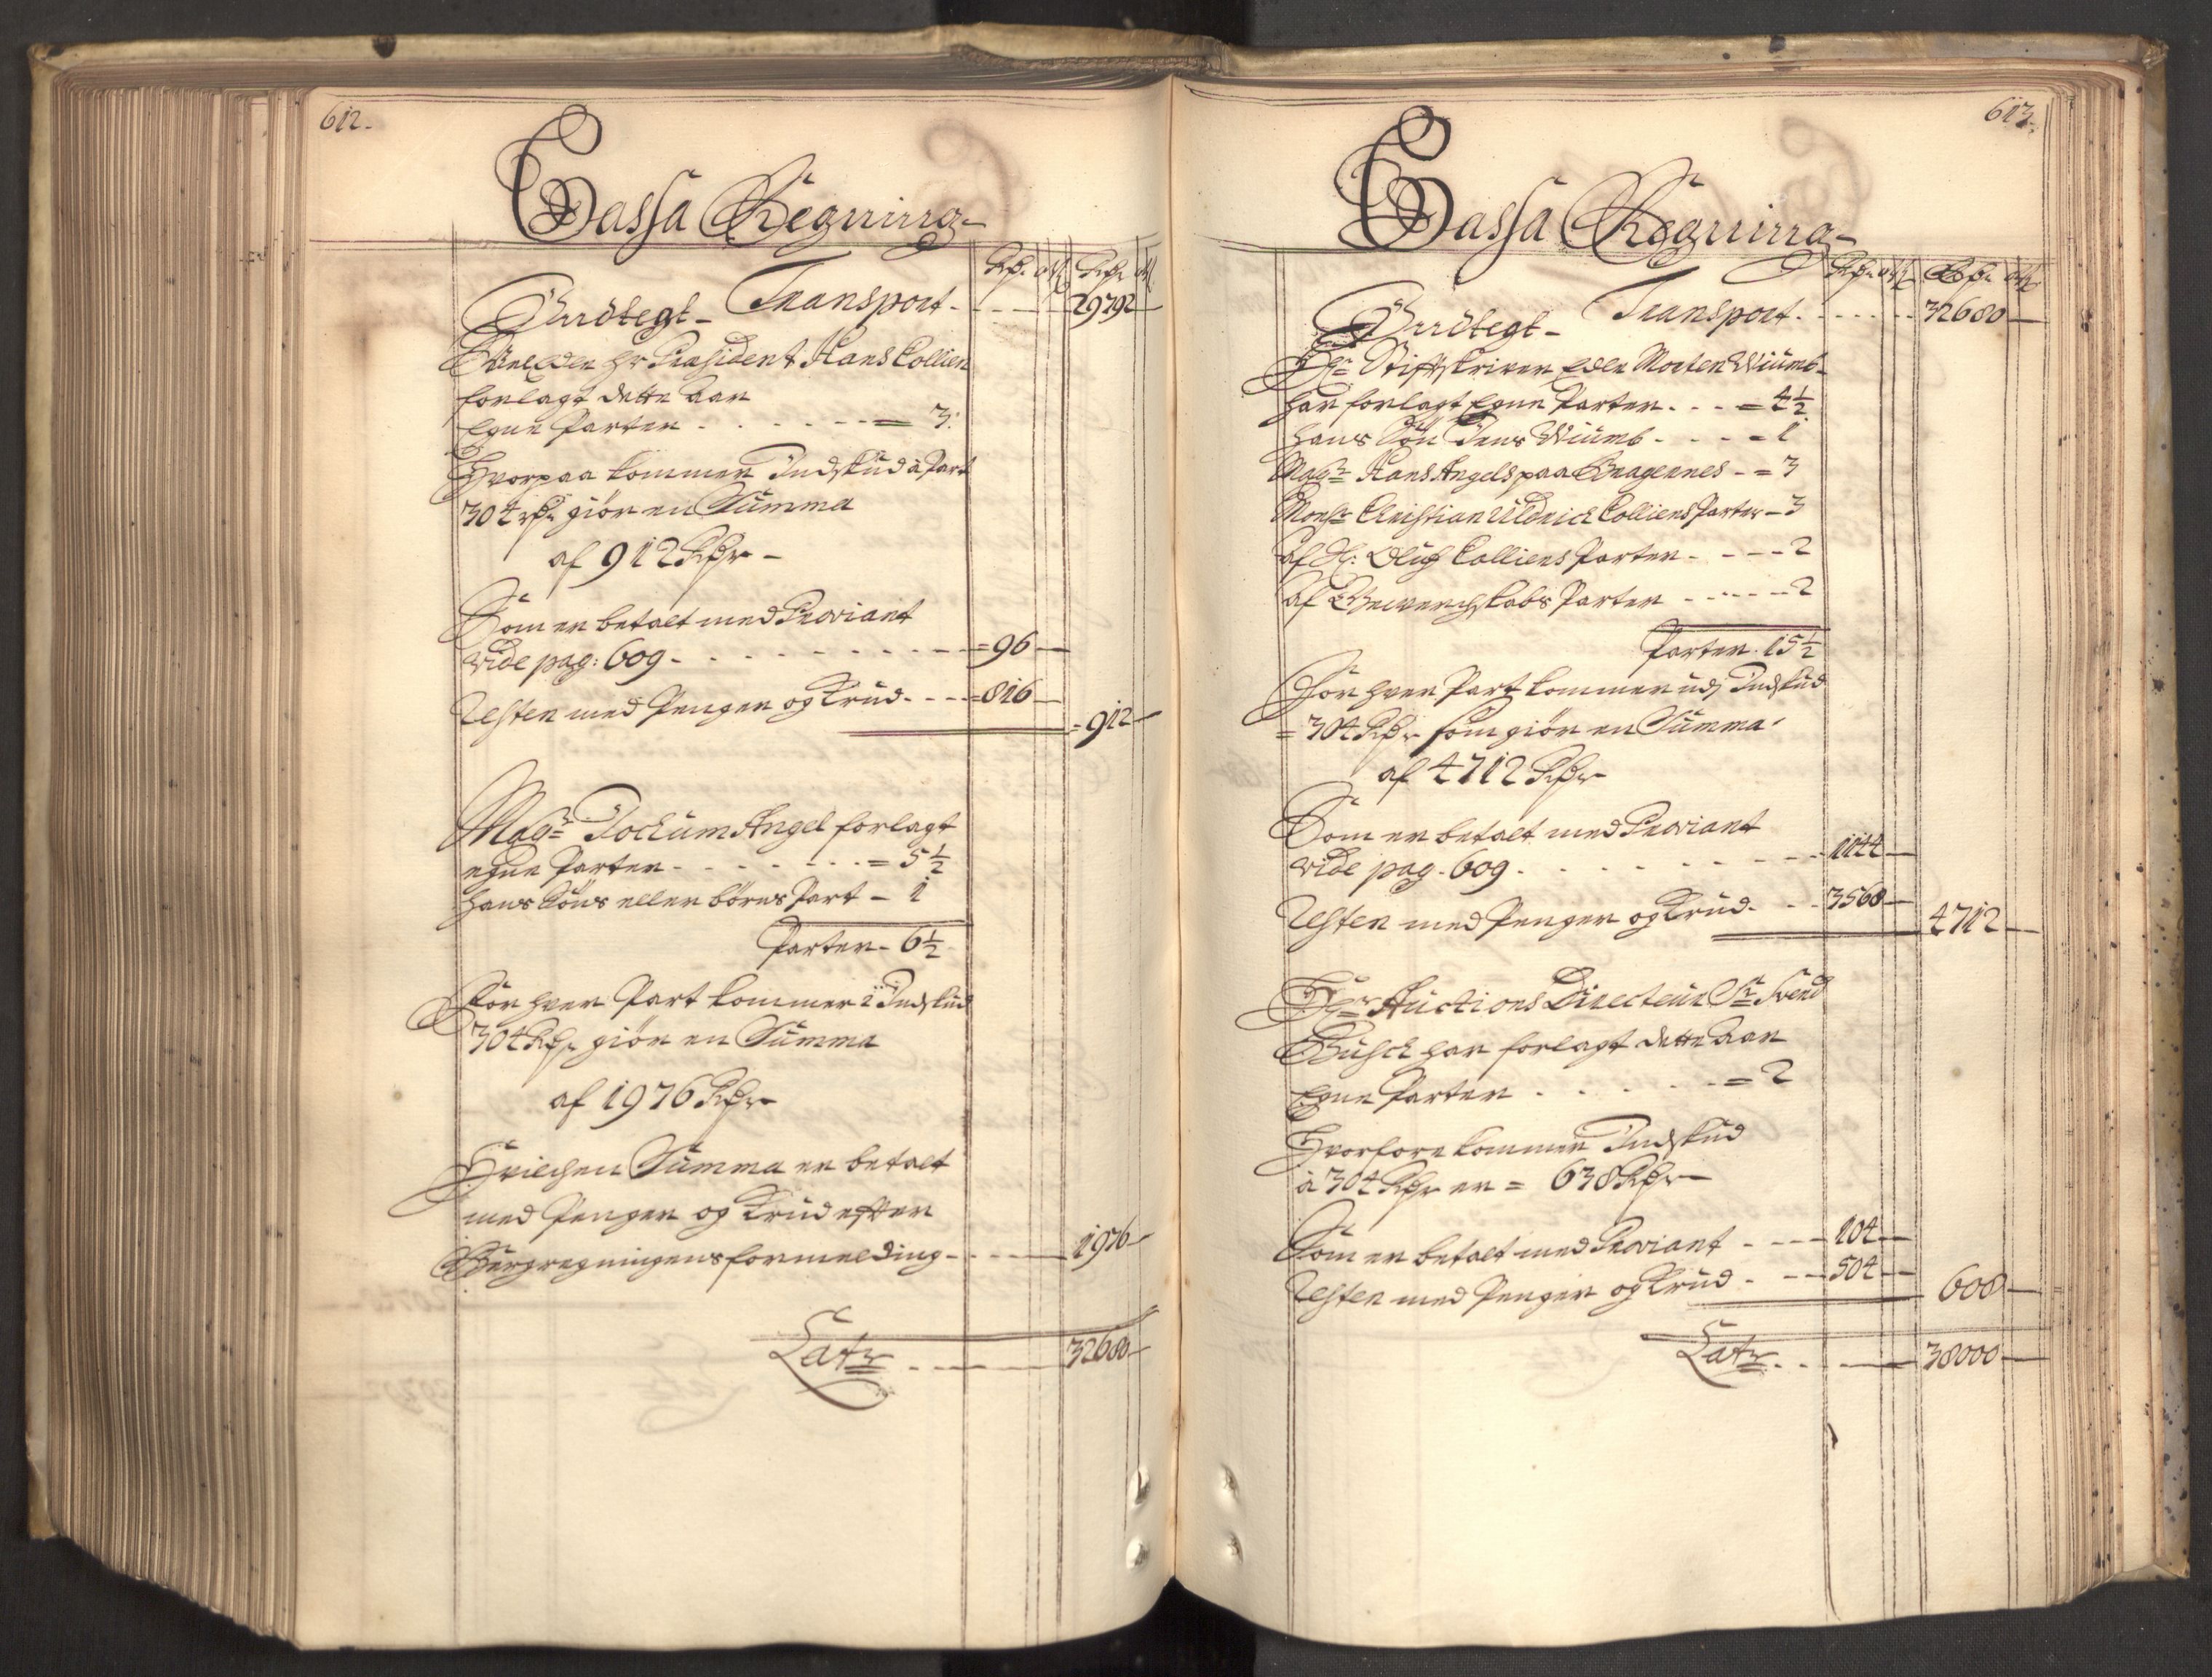 612.
Cassa Regning
Rdr. Mk Rdr. Mk
Indtegt - Transport - 29792 -
Velædle Hr Præsident Hans Collien
forlagt dette Aar
Egne Parter . . . . . = 3.
Hvorpaa kommer Indskud à Part
304 rdr giør en Summa
af 912 Rdr -
Som er betalt med Proviant
vide pag: 609 - - - = 96 -
Resten med Penger og Krud - - - = 816 -
= 912 -
Magr Jochum Angel forlagt
egne Parter - - - - = 5 1/2
hans Søns eller børns Part - 1
Parter - 6 1/2
For hver Part kommer i Indskud
304 Rdr giør en Summa
af 1976 Rdr
Hvilchen Summa er betalt
med Penger og Krud efter
Bergregningens formelding - - - 1976 -
Latr - - - 32680 -
613.
Cassa Regning
Rdr. Mk Rdr. Mk
Indtegt - Transport - - - 32680 -
Hr Stiftskriver Edle Morten Wiumb
har forlagt Egne Parter . . . = 4 1/2
hans Søn Jens Wiumb - - - = 1
Magr Hans Angels paa Bragernes - = 3
Monsr Christian Uldrich Colliens Parter - 3
af Sl: Oluf Colliens Parter - - - - 2
af Gewerchskabs Parter - - - - 2
Parter - 15 1/2
For hver Part kommer udj Indskud
= 304 Rdr som giør en Summa
af 4712 Rdr
Som er betalt med Proviant
vide pag. 609 . . . - - 1144 -
Resten med Penger og Krud - - - 3568 -
4712 -
Hr Auctions Directeur Sr Svend
Busch har forlagt dette Aar
Egne Parter . . . . - = 2
Hvorfore kommer Indskud
à 304 Rdr er = 638 Rdr -
Som er betalt med Proviant - - - 104 -
Resten med Penger og Krud - - - 504 -
608 -
Latr - - - 38000 -